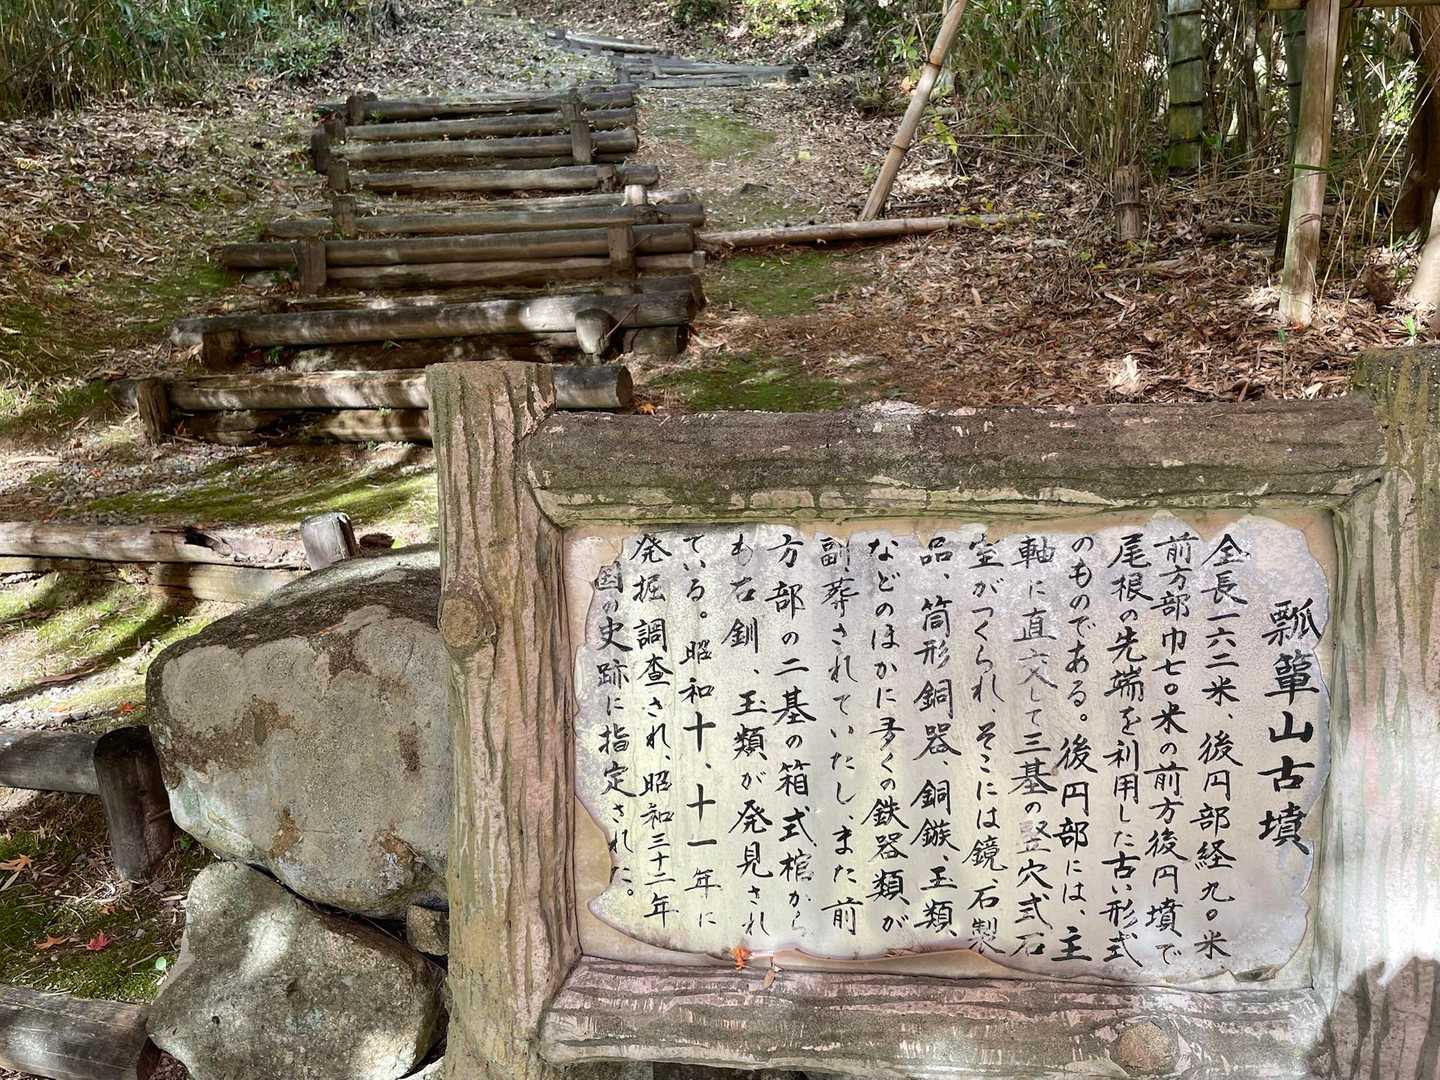 瓢箪山古墳
全長一六二米、後円部経九〇米
前方部巾七〇米の前方後円墳で
尾根の先端を利用した古い形式
のものである。後円部には、主
軸に直交して三基の竪穴式石
室がつくられ、そこには鏡、石製
品、筒形銅器、銅鏃、玉類
などのほかに多くの鉄器類が
副葬されていたし、また前
方部の二基の箱式棺から
も石釧、玉類が発見され
ている。昭和十、十一年に
発掘調査され、昭和三十二年
国の史跡に指定された。